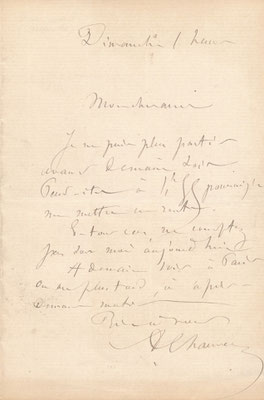 Dimanche 1 heure
Mon cher ami
Je ne puis plus partir
avant demain soir
Peut-être à 4h pourrai-je
me mettre en route.
En tout cas ne comptez
pas sur moi aujourd'hui
A demain soir à Paris
ou au plus tard, à après-
demain matin
Bien à vous